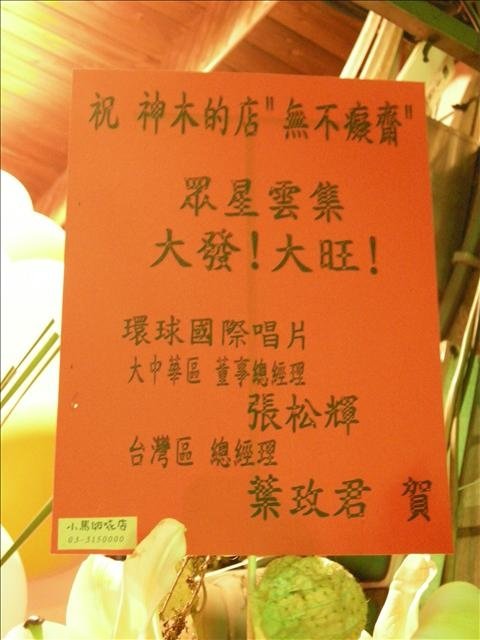 祝 神木的店"無不癡齋"
眾星雲集
大發!大旺!
環球國際唱片
大中華區 董事總經理
張松輝
台灣區 總經理
葉玫君 賀
小馬的花店
03-3150000